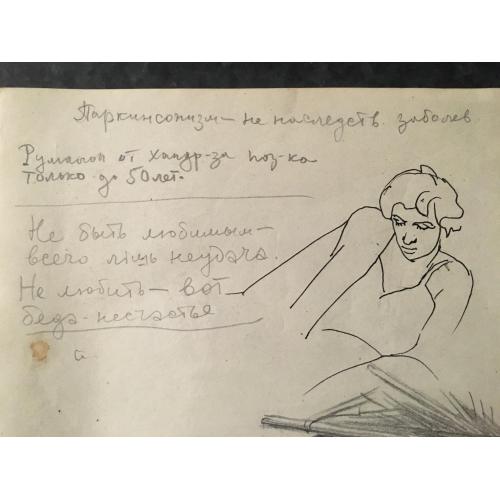 Паркинсонизм – не наследств. заболев
Румалон от хондр-за поз-ка
только до 50 лет.
Не быть любимым –
всего лишь неудача.
Не любить – вот
беда - несчастье